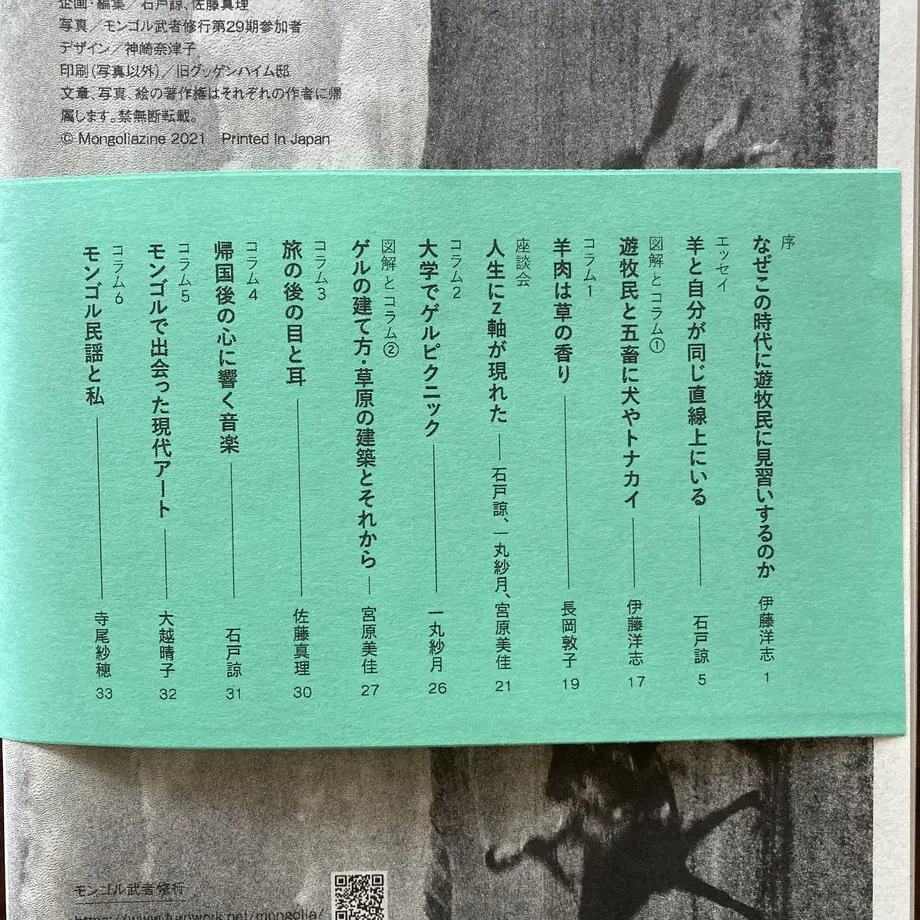 企画・編集／石戸諒、佐藤真理
写真／モンゴル武者修行第29期参加者
デザイン／神崎奈津子
印刷(写真以外)／旧グッゲンハイム邸
文章、写真、絵の著作権はそれぞれの作者に帰
属します。禁無断転載。
© Mongoliazine 2021 Printed in Japan
序
なぜこの時代に遊牧民に見習いするのか 伊藤洋志 1
エッセイ
羊と自分が同じ直線上にいる 石戸諒 5
図解とコラム①
遊牧民と五畜に犬やトナカイ 伊藤洋志 17
コラム1
羊肉は草の香り 長岡敦子 19
座談会
人生にZ軸が現れた 石戸諒、一丸紗月、宮原美佳 21
コラム2
大学でゲルピクニック 一丸紗月 26
図解とコラム②
ゲルの建て方・草原の建築とそれから 宮原美佳 27
コラム3
旅の後の目と耳 佐藤真理 30
コラム4
帰国後の心に響く音楽 石戸諒 31
コラム5
モンゴルで出会った現代アート 大越晴子 32
コラム6
モンゴル民謡と私 寺尾紗穂 33
モンゴル武者修行
https://www.funwork.net/mongolia/